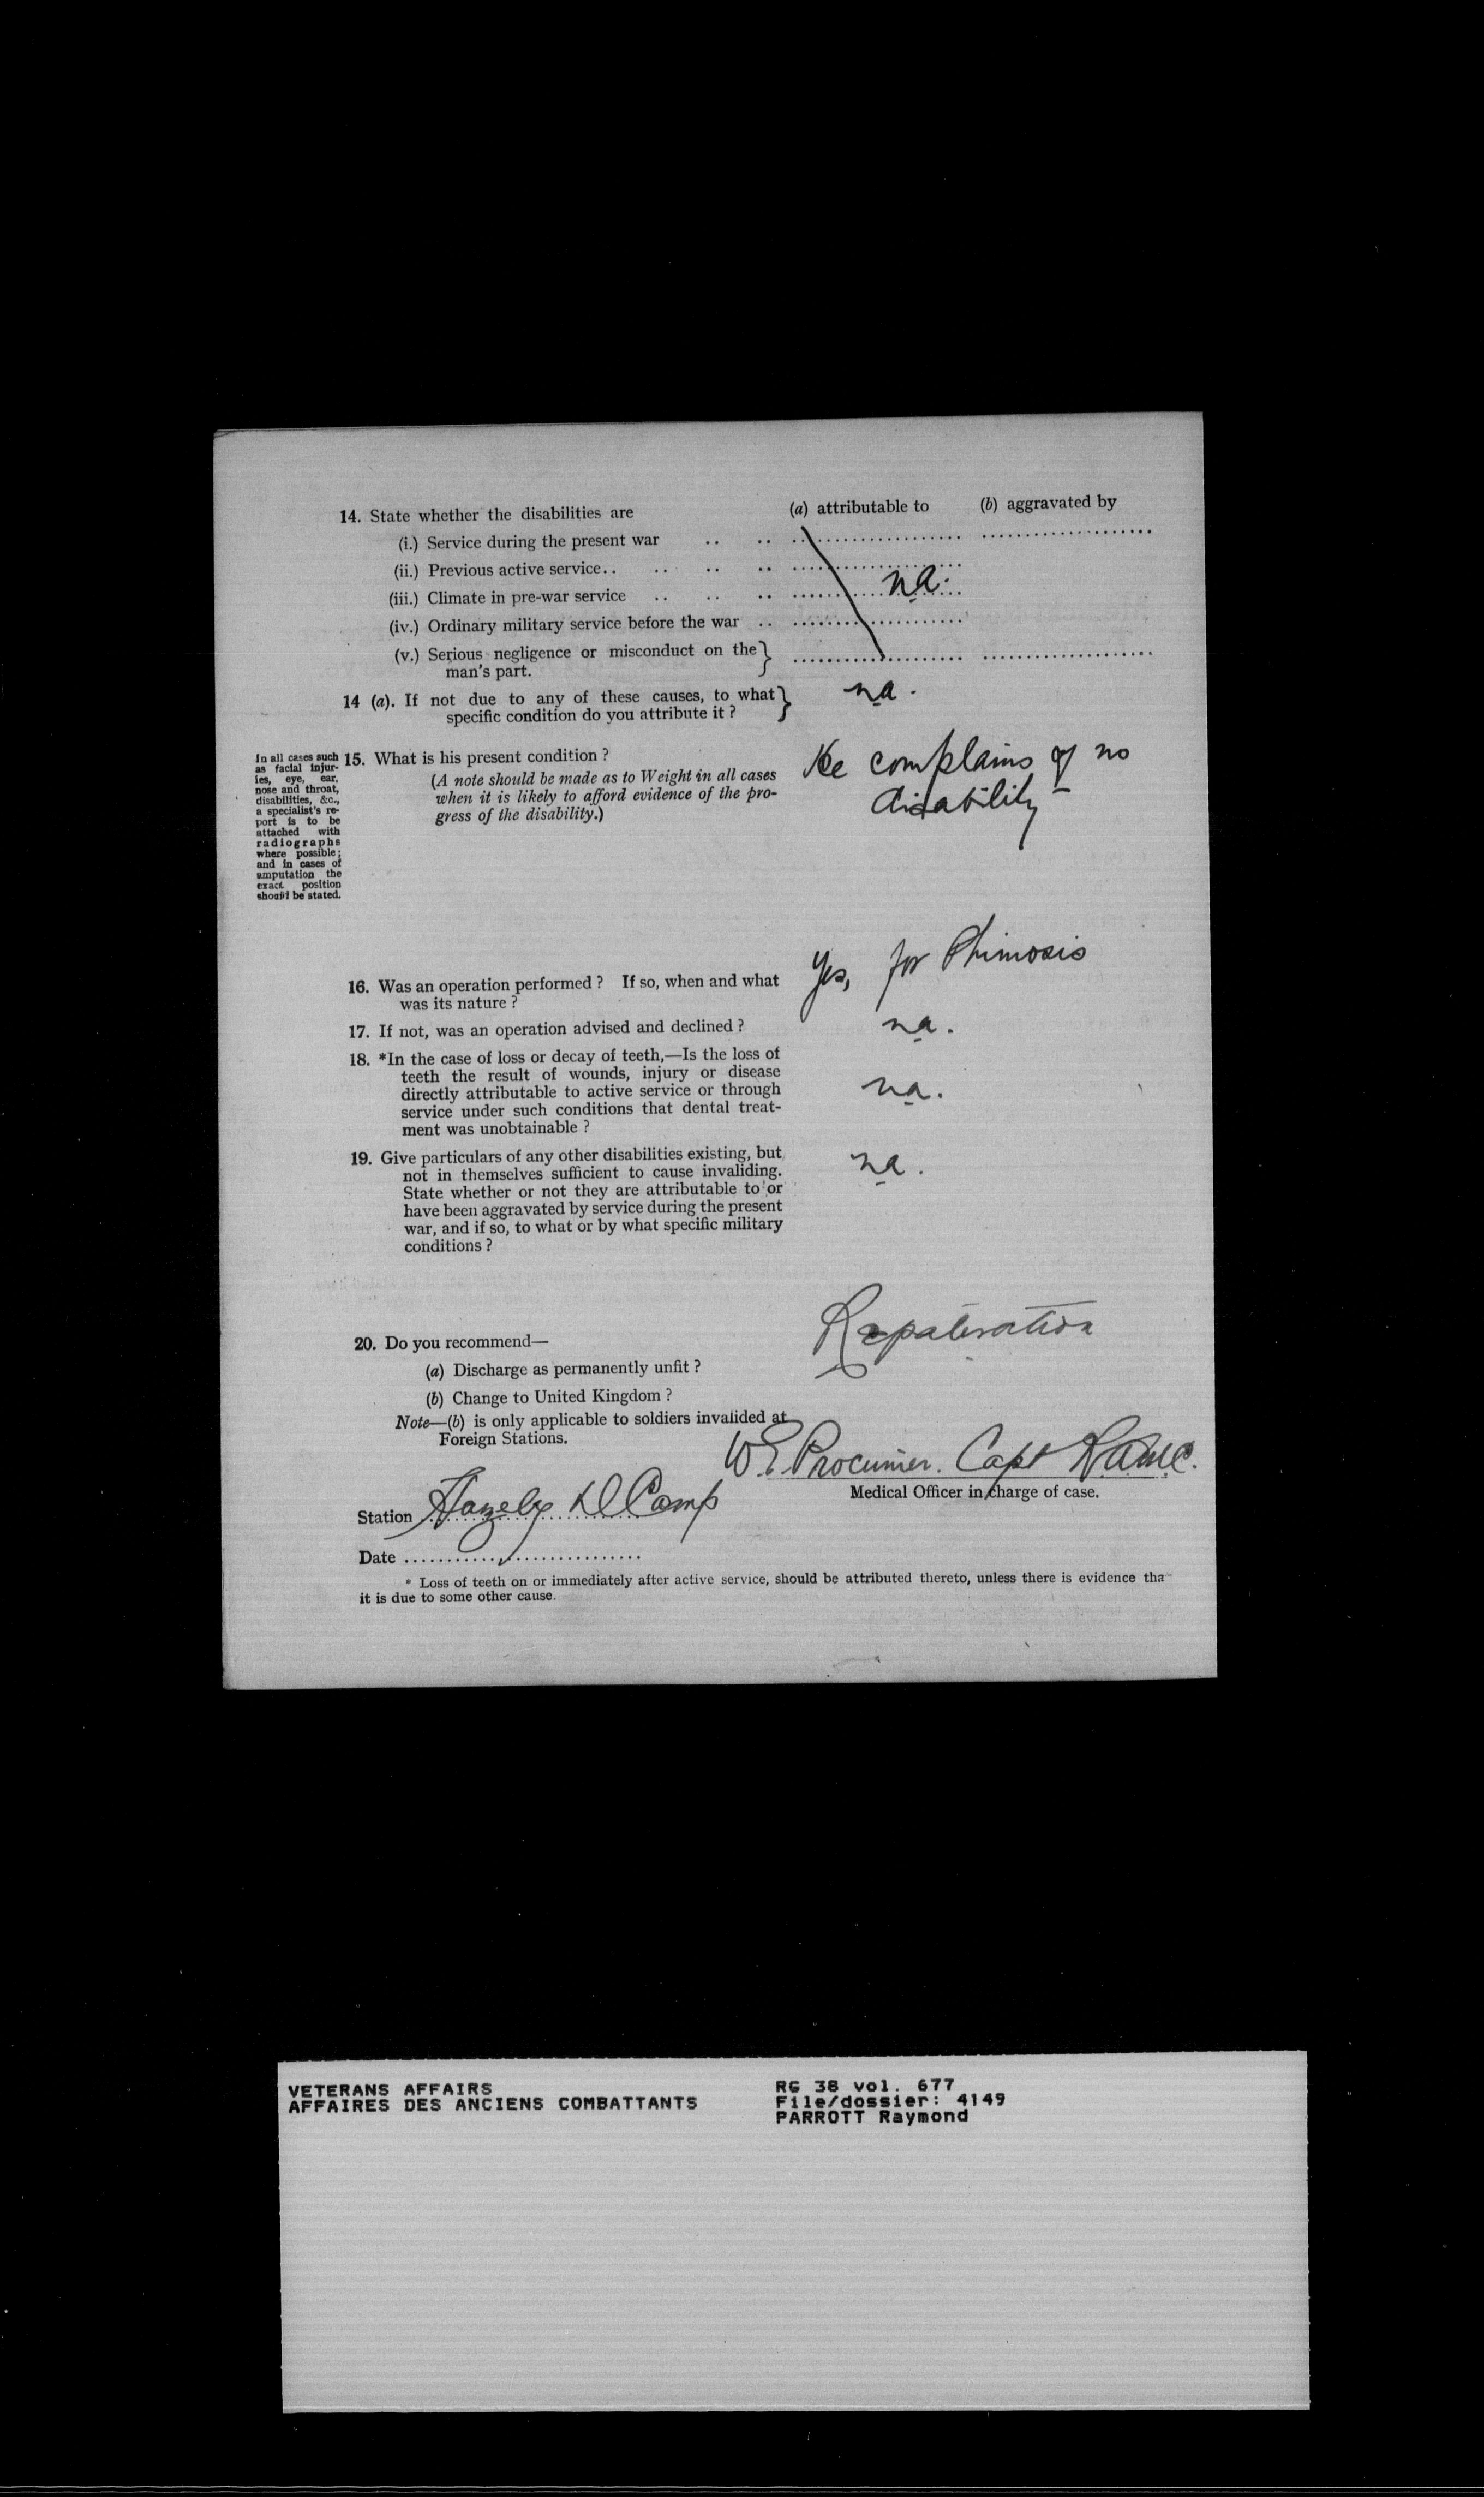 14. State whether the disabilities are (a) attributable to (b) aggravated by
(i.) Service during the present war .. ..
(ii.) Previous active service.. .. .. ..
na.
(iii.) Climate in pre-war service .. .. ..
(iv.) Ordinary military service before the war ..
(v.) Serious negligence or misconduct on the
man's part.
14 (a). If not due to any of these causes, to what na.
specific condition do you attribute it ?
In all cases such
as facial injur-
ies, eye, ear,
nose and throat,
disabilities, &c.,
a specialist's re-
port is to be
attached with
radiographs
where possible;
and in cases of
amputation the
exact position
should be stated.
15. What is his present condition ? He complains of no
(A note should be made as to Weight in all cases disability
when it is likely to afford evidence of the pro-
gress of the disability.)
Yes, for Phimosis
16. Was an operation performed ? If so, when and what
was its nature ?
17. If not, was an operation advised and declined ? na.
18. *In the case of loss or decay of teeth,—Is the loss of
teeth the result of wounds, injury or disease
directly attributable to active service or through na.
service under such conditions that dental treat-
ment was unobtainable ?
19. Give particulars of any other disabilities existing, but na.
not in themselves sufficient to cause invaliding.
State whether or not they are attributable to or
have been aggravated by service during the present
war, and if so, to what or by what specific military
conditions ?
Repateration
20. Do you recommend—
(a) Discharge as permanently unfit ?
(b) Change to United Kingdom ?
Note—(b) is only applicable to soldiers invalided at
Foreign Stations.
W E Procunier. Capt RAMC.
Medical Officer in charge of case.
Station Hazeley D Camp
Date
* Loss of teeth on or immediately after active service, should be attributed thereto, unless there is evidence tha
it is due to some other cause.
VETERANS AFFAIRS RG 38 vol. 677
AFFAIRES DES ANCIENS COMBATTANTS File/dossier: 4149
PARROTT Raymond